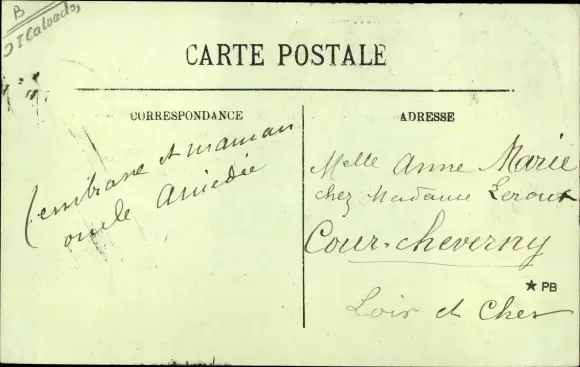 B
I Calvados
CARTE POSTALE
CORRESPONDANCE
J'embrasse et maman
oncle Amédée
ADRESSE
Melle Anne Marie
chez Madame Leroux
Cour-cheverny
★ PB
Loir et Cher